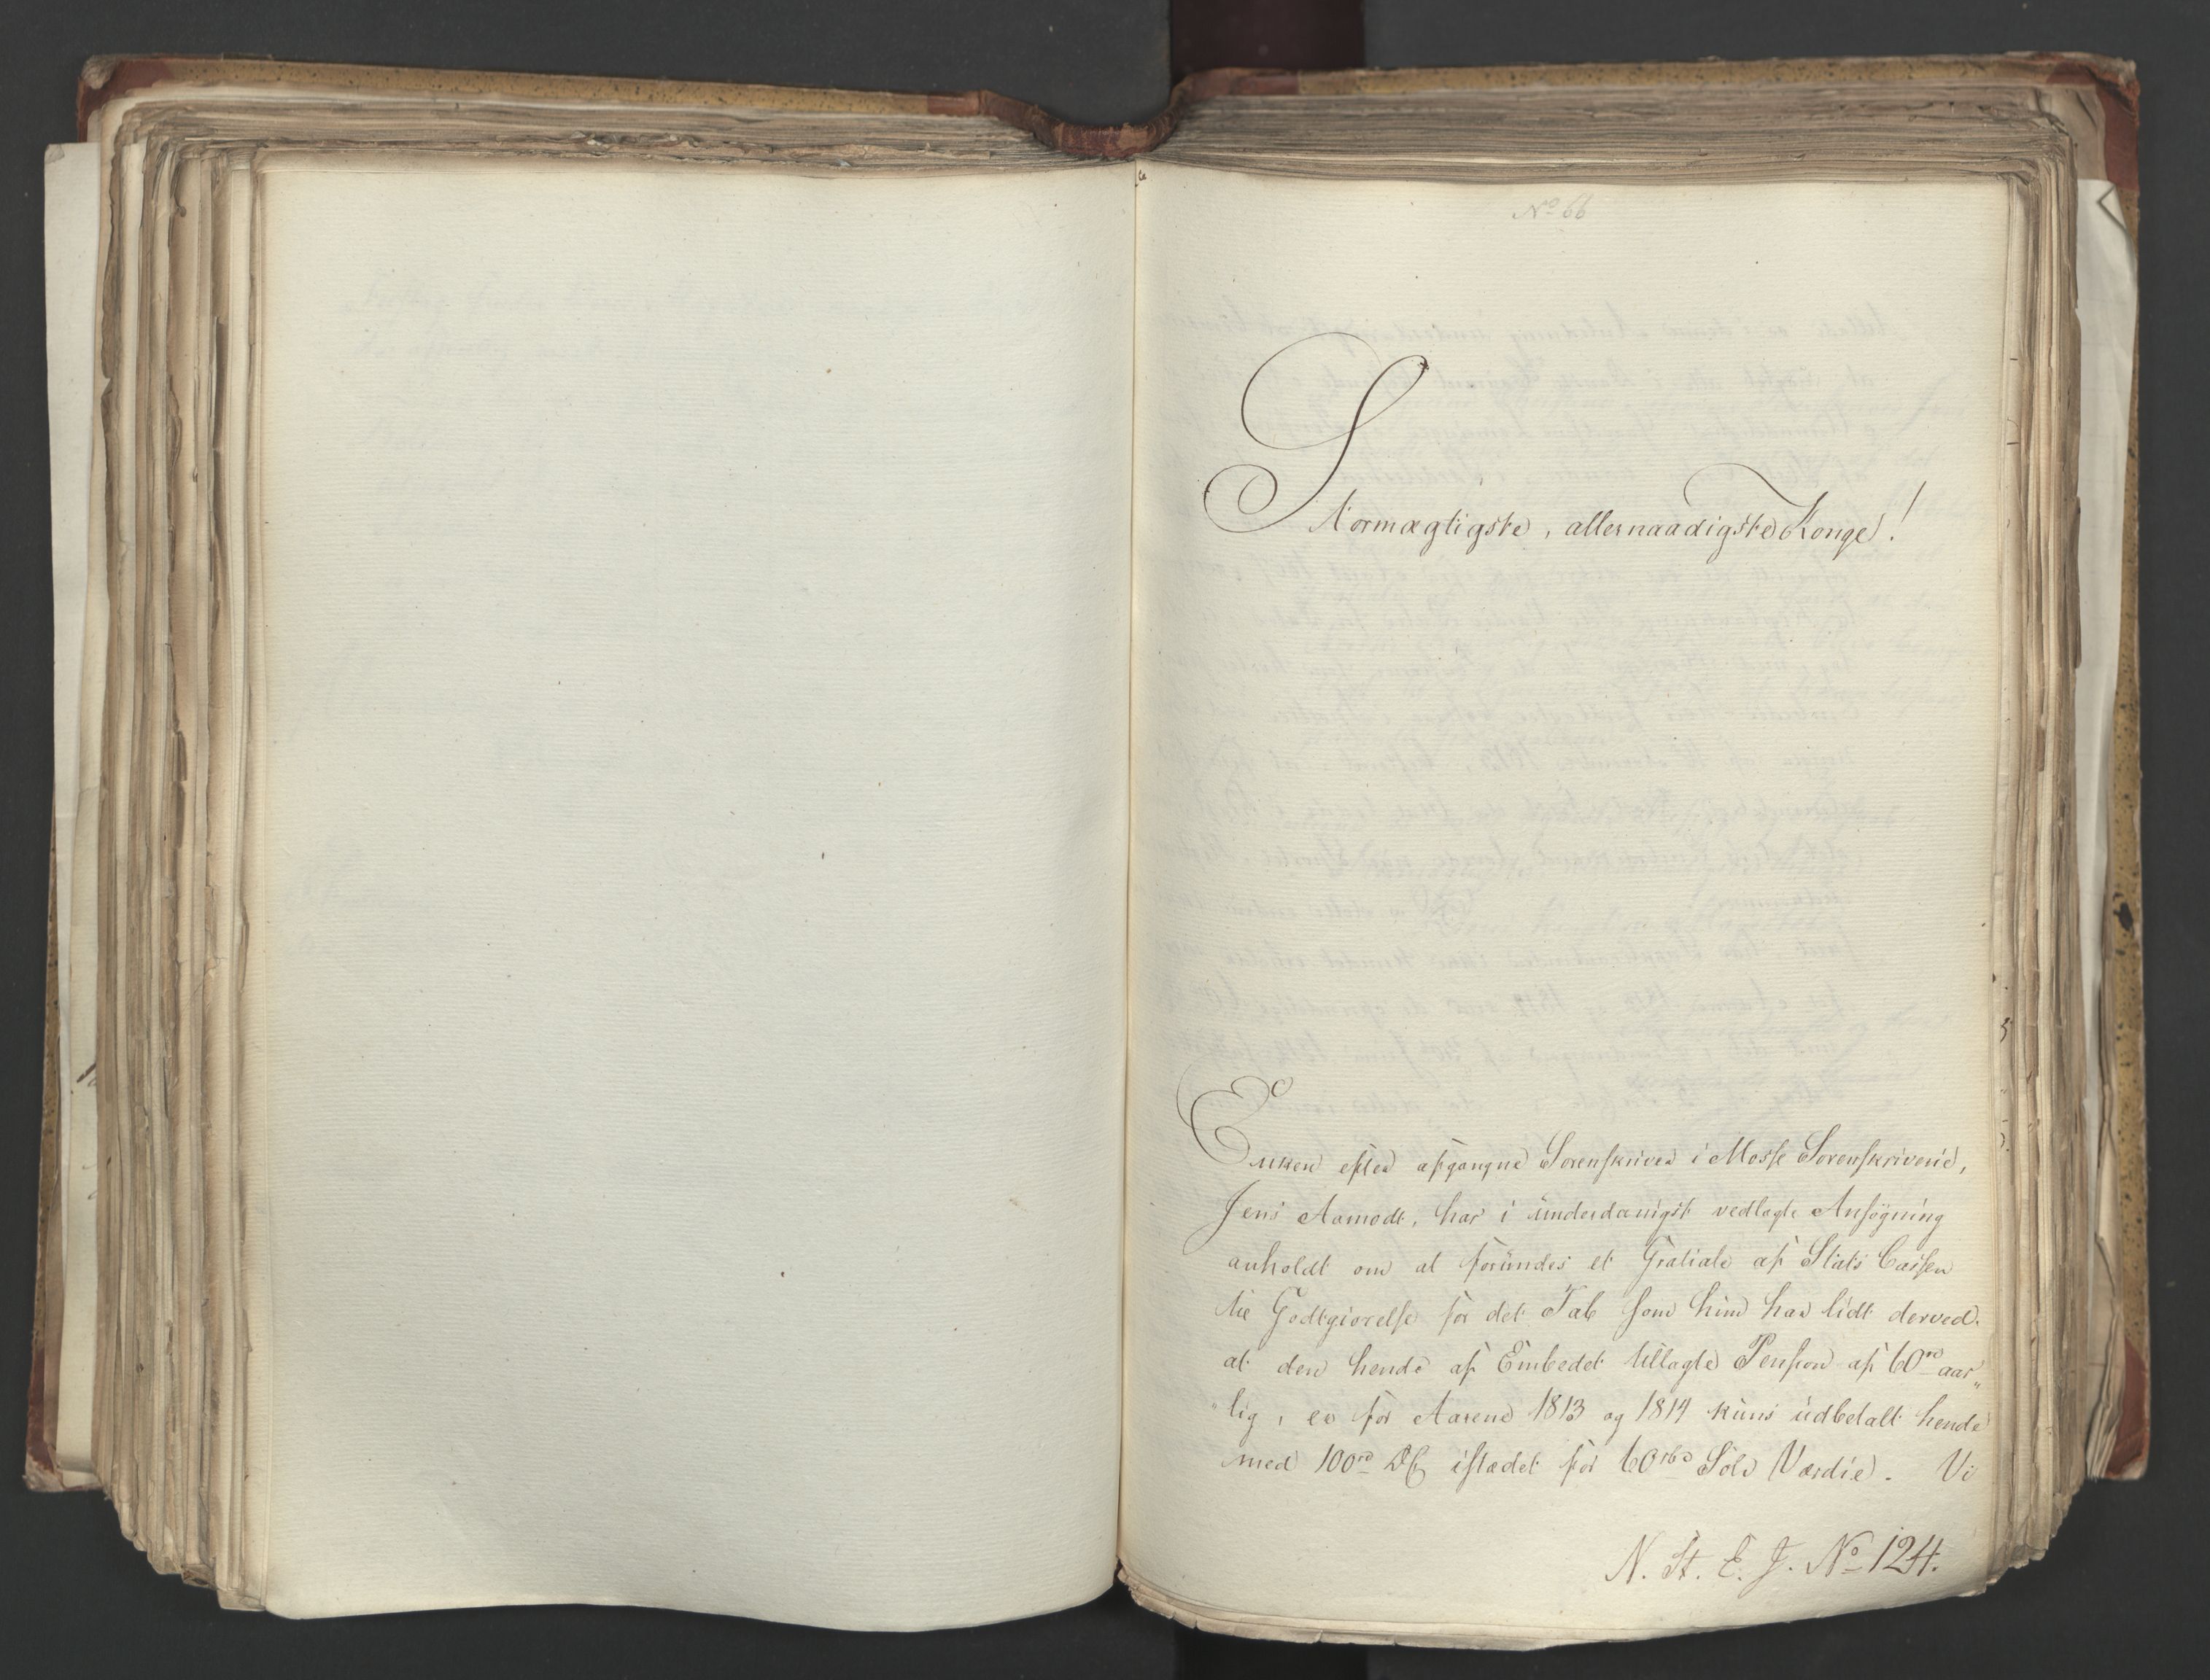 No 66
Stormægtigste, allernaadigste Konge!
Enken efter afgangne Sorenskriver i Mosse Sorenskriverie,
Jens Aamodt, har i underdanigst vedlagte Ansøgning
anholdt om at forundes et Gratiale af Stats Cassen
til Godtgiørelse for det Tab som hun har lidt derved
at den hende af Embedet tillagte Pension af 60 rd aar„
„lig, er for Aarene 1813 og 1814 kuns udbetalt hende
med 100 rd istædet for 60 rbd Sølv Værdie. Vi
N. St. E. J. No 124.